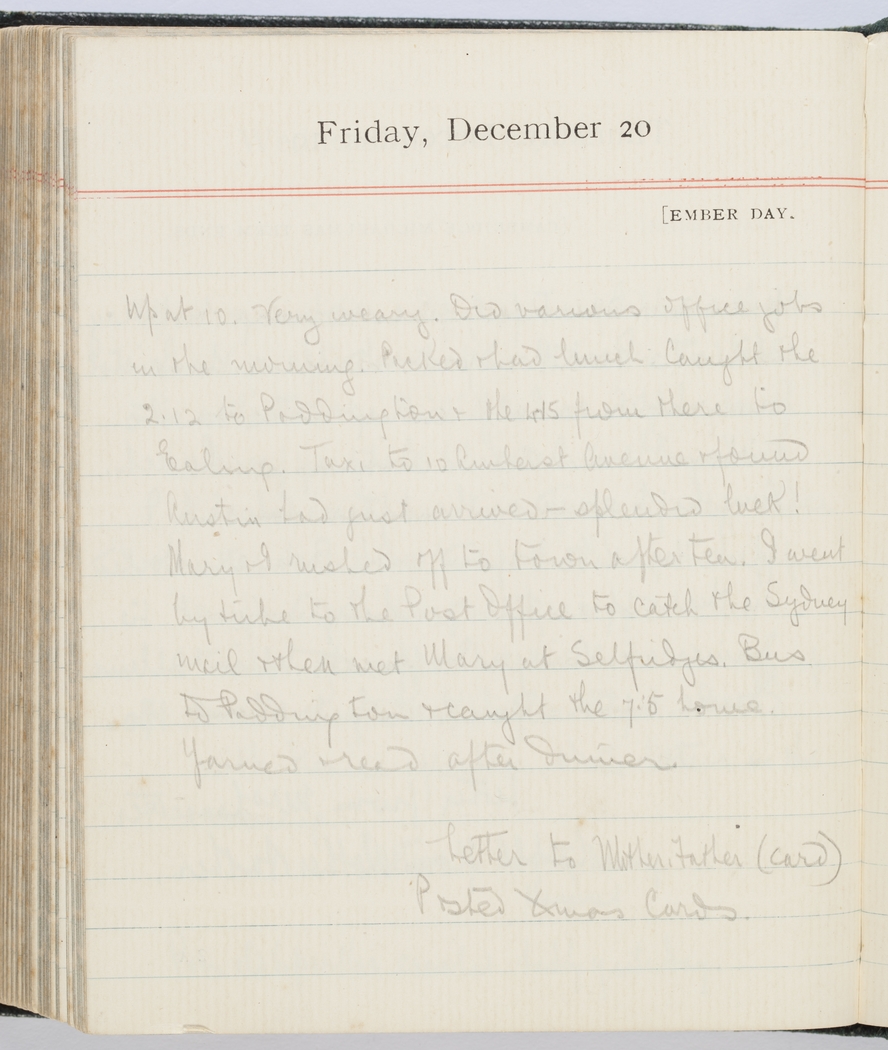 Friday, December 20
[EMBER DAY.
Up at 10. Very weary. Did various office jobs
in the morning. Packed & had lunch. Caught the
2.12 to Paddington & the 4.15 from there to
Ealing. Taxi to 10 Amherst Avenue & found
Austin had just arrived – splendid luck!
Mary & I rushed off to town after tea. I went
by tube to the Post Office to catch the Sydney
mail & then met Mary at Selfridges. Bus
to Paddington & caught the 7.5 home.
Yarned & read after dinner.
Letter to Mother, Father (card)
Posted Xmas Cards.